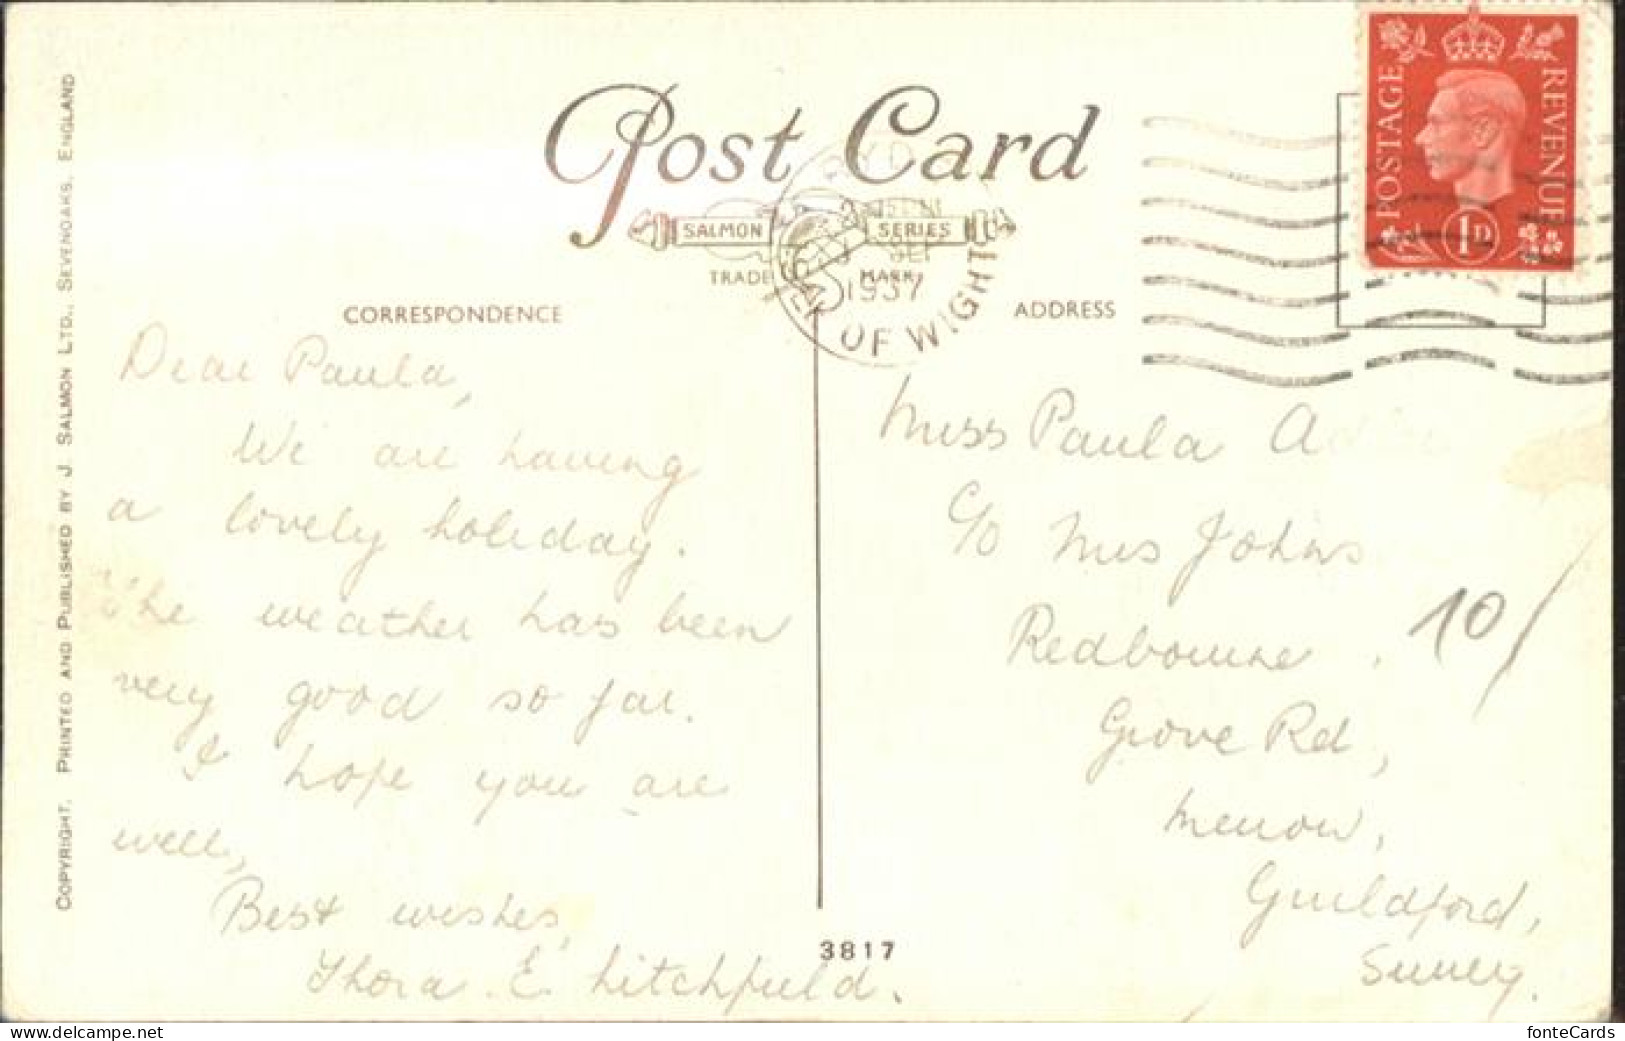 Post Card
POSTAGE
REVENUE
1D
SALMON SERIES
TRADE MARK
RYD
SEP
1937
OF WIGHT
CORRESPONDENCE
ADDRESS
COPYRIGHT. PRINTED AND PUBLISHED BY J. SALMON LTD., SEVENOAKS, ENGLAND
Dear Paula,
We are having
a lovely holiday.
The weather has been
very good so far.
I hope you are
well,
Best wishes,
Thora. E. Litchfield.
Miss Paula A
c/o Mrs Johns
Redbourne,
Grove Rd,
Merrow,
Guildford,
Surrey.
10/
3817
delcampe.net
fonteCards